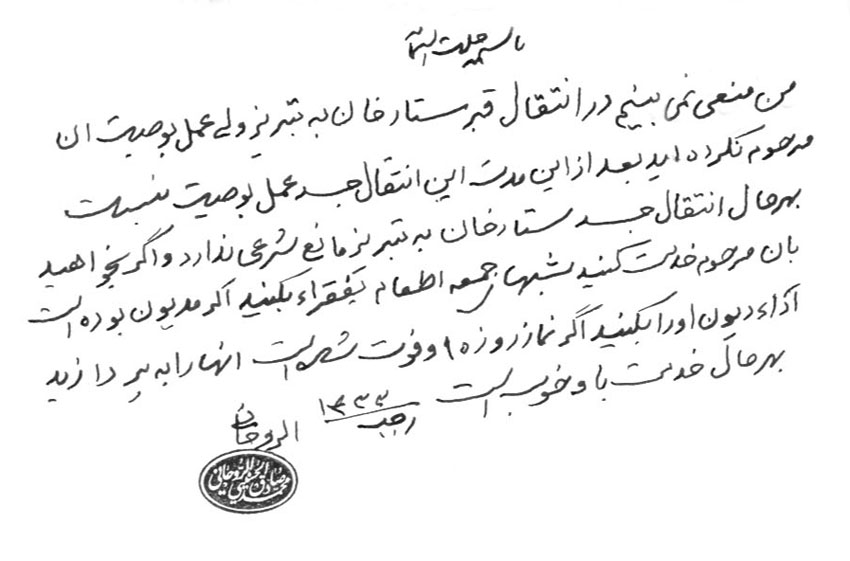 باسمه جلت اسمائه
من منعی نمی بینم در انتقال قبر ستارخان به تبریز ولی عمل بوصیت ان
مرحوم نکرده اید بعد از این مدت این انتقال جسد عمل بوصیت نیست
بهرحال انتقال جسد ستارخان به تبریز مانع شرعی ندارد و اگر بخواهید
بان مرحوم خدمت کنید شبهای جمعه اطعام بفقراء بکنید اگر مدیون بوده است
اداء دیون او را بکنید اگر نماز روزه او فوت شده است انها را به پردازید
بهرحال خدمت باو خوب است
رجب ۱۴۳۳
الروحانی
محمد صادق الحسینی الروحانی